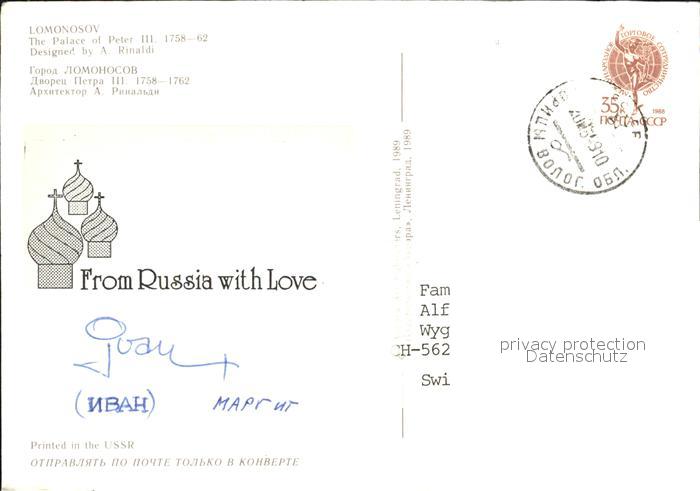 LOMONOSOV
The Palace of Peter III. 1758—62
Designed by A. Rinaldi
Город ЛОМОНОСОВ
Дворец Петра III. 1758—1762
Архитектор А. Ринальди
From Russia with Love
Ivan
(ИВАН) МАРГИТ
Printed in the USSR
ОТПРАВЛЯТЬ ПО ПОЧТЕ ТОЛЬКО В КОНВЕРТЕ
Leningrad. 1989
Ленинград. 1989
ТОРГОВОЕ
35к 1988
ПОЧТА СССР
ВОЛОГ. ОБЛ.
Fam
Alf
Wyg
CH-562
Swi
privacy protection
Datenschutz